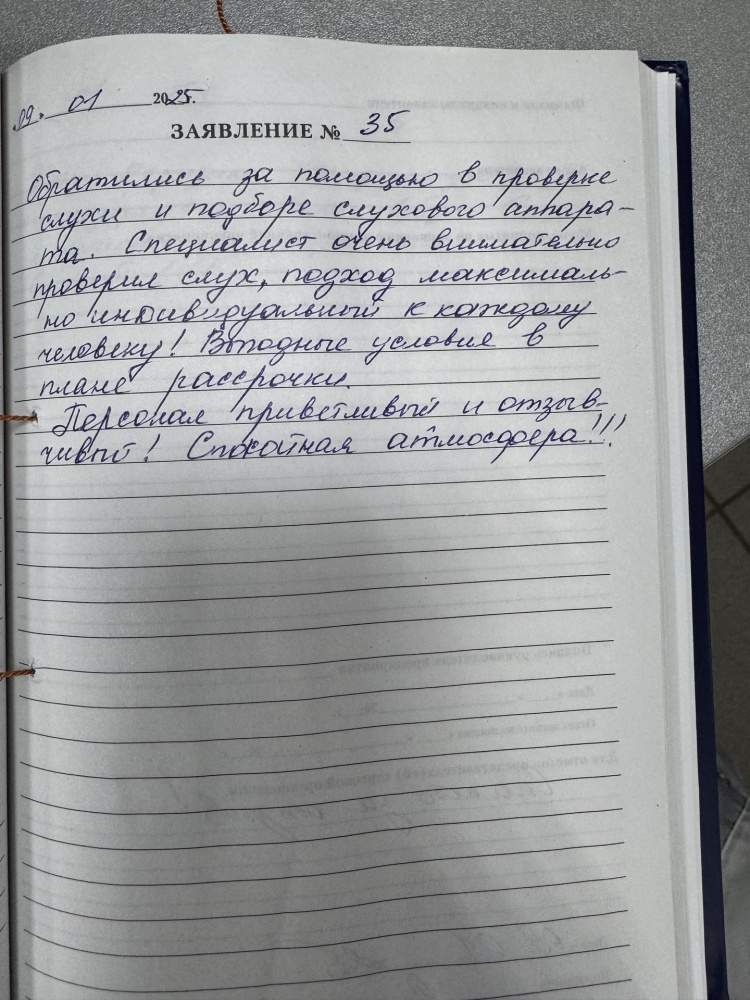 09. 01 2025г.
ЗАЯВЛЕНИЕ № 35
Обратились за помощью в проверке
слухи и подборе слухового аппара-
та. Специалист очень внимательно
проверил слух, подход максималь-
но индивидуальный к каждому
человеку! Выгодные условие в
плане рассрочки.
Персонал приветливый и отзыв-
чивый! Спокойная атмосфера!!!